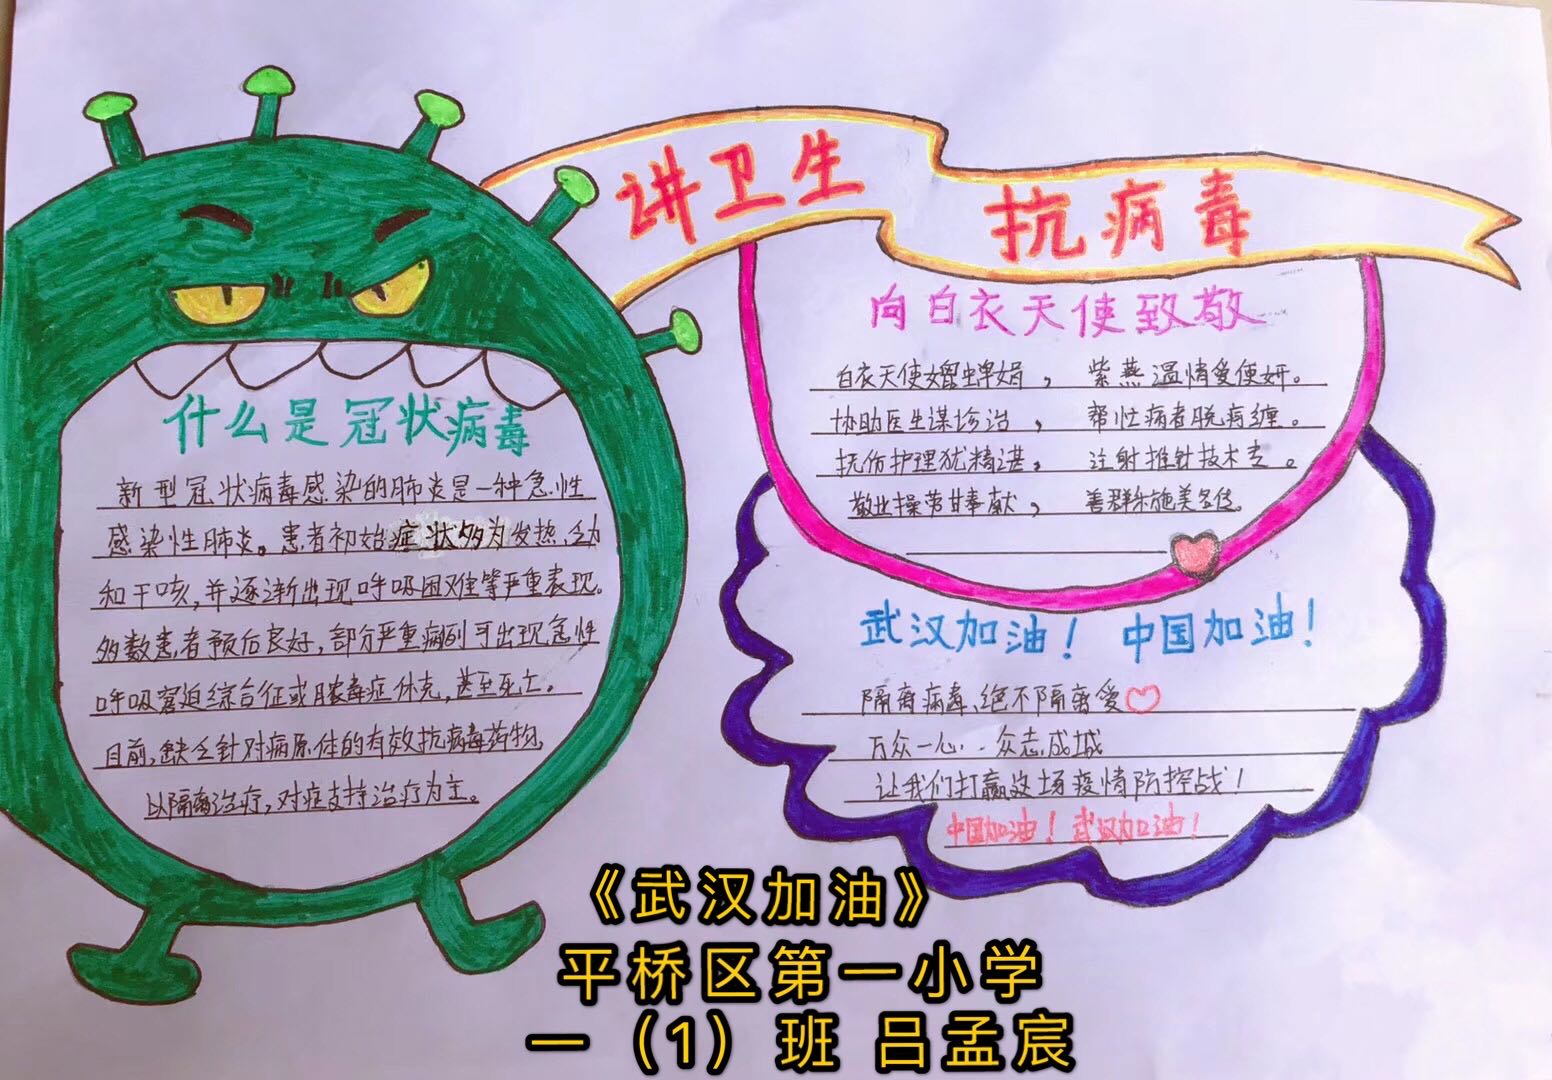 讲卫生
抗病毒
什么是冠状病毒
新型冠状病毒感染的肺炎是一种急性
感染性肺炎。患者初始症状多为发热、乏力
和干咳,并逐渐出现呼吸困难等严重表现。
多数患者预后良好,部分严重病列可出现急性
呼吸窘迫综合征或脓毒症休克,甚至死亡。
目前,缺乏针对病原体的有效抗病毒药物,
以隔离治疗,对症支持治疗为主。
向白衣天使致敬
白衣天使嫿婵娟, 紫燕温情爱便妍。
协助医生谋诊治, 帮忙病者脱病缠。
抚伤护理犹精湛, 注射推针技术专。
敬业操劳甘奉献, 善群乐施美名传。
武汉加油! 中国加油!
隔离病毒、绝不隔离爱
万众一心..众志成城
让我们打赢这场疫情防控战!
中国加油! 武汉加油!
《武汉加油》
平桥区第一小学
一(1)班 吕孟宸